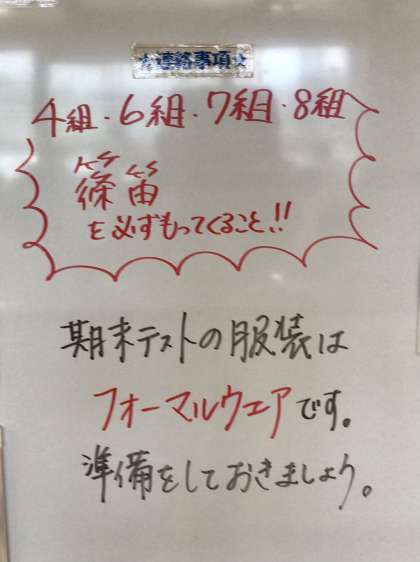 ☆連絡事項☆
4組・6組・7組・8組
篠笛
を必ずもってくること!!
期末テストの服装は
フォーマルウェアです。
準備をしておきましょう。